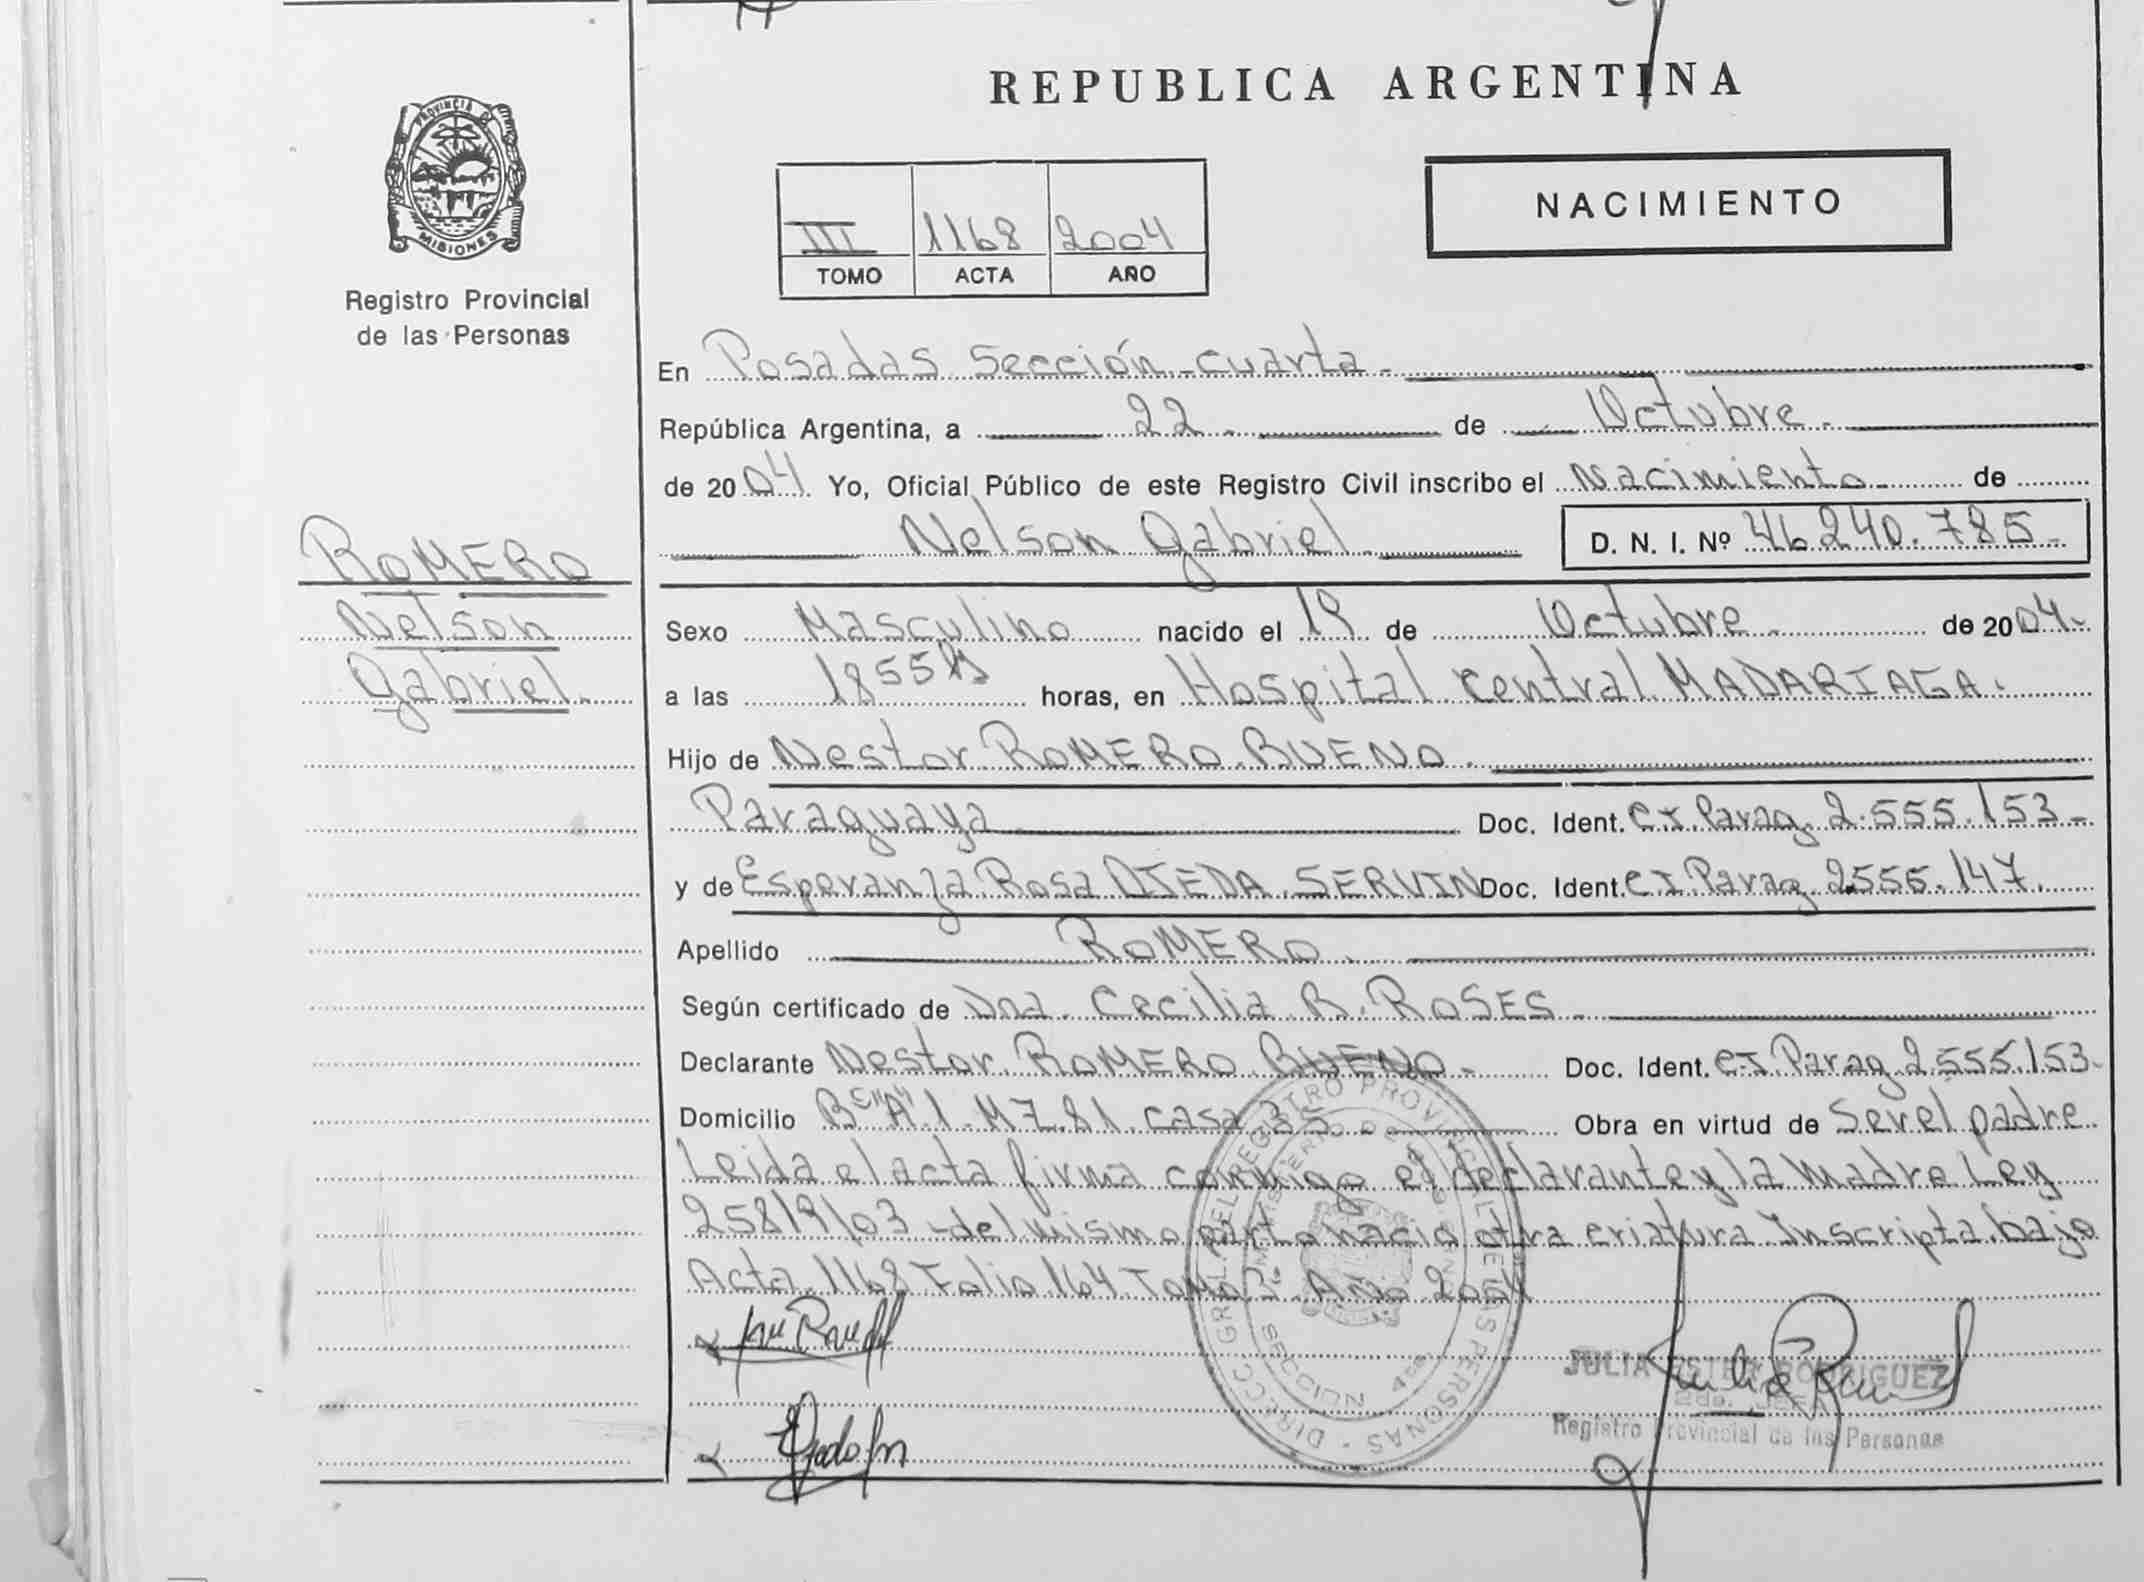 REPUBLICA ARGENTINA
PROVINCIA D
MISIONES
Registro Provincial
de las Personas
NACIMIENTO
III 1168 2004
TOMO ACTA AÑO
En Posadas Sección Cuarta.
República Argentina, a 22 de Octubre.
de 2004. Yo, Oficial Público de este Registro Civil inscribo el Nacimiento de
Nelson Gabriel D. N. I. Nº 46.240.785
ROMERO
Nelson
Gabriel.
Sexo Masculino nacido el 19 de Octubre de 2004.
a las 1855 hs horas, en Hospital Central MADARIAGA.
Hijo de Nestor ROMERO BUENO.
Paraguaya Doc. Ident. C.I. Parag. 2.555.153
y de Esperanza Rosa OJEDA SERVIN Doc. Ident. C I Parag. 2555.147.
Apellido ROMERO.
Según certificado de Dra. Cecilia R. ROSES
Declarante Nestor ROMERO BUENO Doc. Ident. C.I. Parag 2.555.153
Domicilio "A" 1. MZ. 81. casa 35 Obra en virtud de Ser el padre
Leida el acta firma conmigo el declarante y la madre Ley
25819/03 del mismo parto nació otra criatura Inscripta bajo
Acta 1168 Folio 164 Tomo 3º Año 2004
JULIA ESTER RODRIGUEZ
2do. JEFE
Registro Provincial de las Personas
DIRECC. GRAL. DEL REGISTRO PROVINCIAL DE LAS PERSONAS
MINISTERIO DE GOBIERNO
SECCION 4ta.